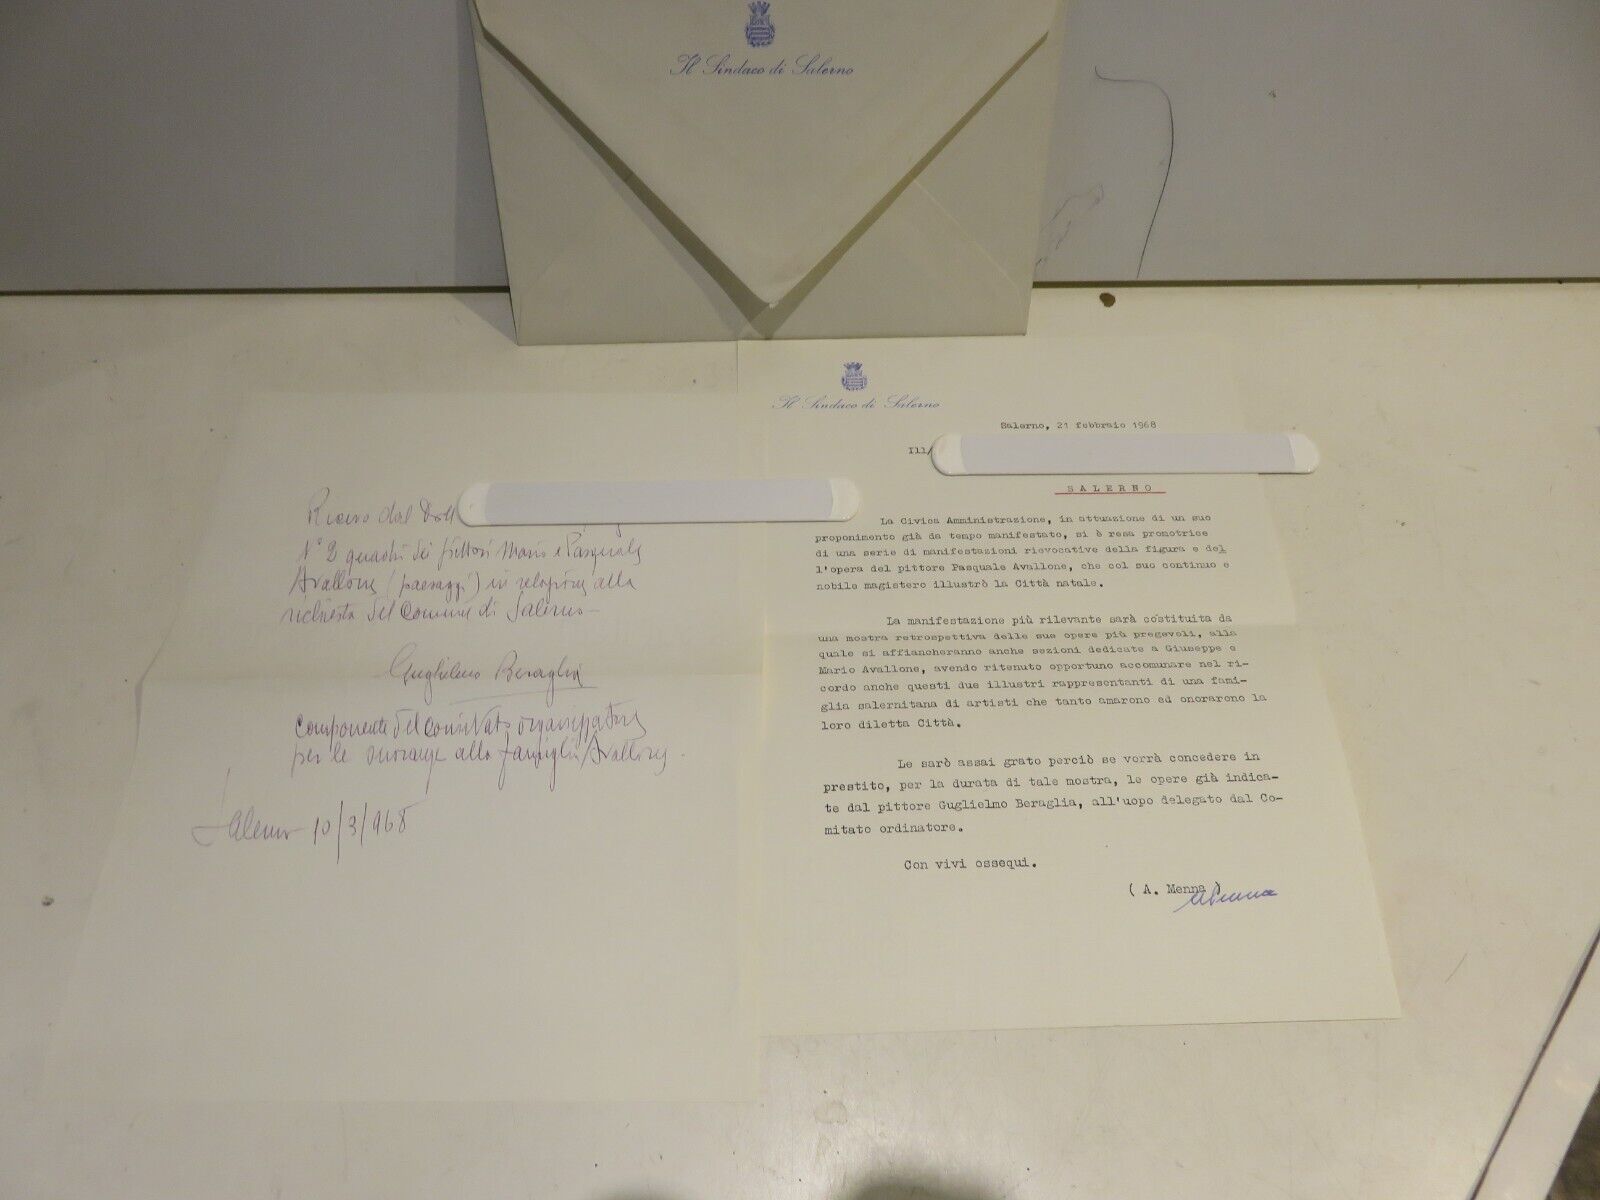 Il Sindaco di Salerno
Ricevo dal Dott
N° 2 quadri dei pittori Mario e Pasquale
Avallone (paesaggi) in relazione alla
richiesta del Comune di Salerno -
Guglielmo Beraglia
Componente del Comitato organizzatore
per le onoranze alla famiglia Avallone -
Salerno 10/3/968
Il Sindaco di Salerno
Salerno, 21 febbraio 1968
Ill/
SALERNO
La Civica Amministrazione, in attuazione di un suo
proponimento già da tempo manifestato, si è resa promotrice
di una serie di manifestazioni rievocative della figura e del
l'opera del pittore Pasquale Avallone, che col suo continuo e
nobile magistero illustrò la Città natale.
La manifestazione più rilevante sarà costituita da
una mostra retrospettiva delle sue opere più pregevoli, alla
quale si affiancheranno anche sezioni dedicate a Giuseppe e
Mario Avallone, avendo ritenuto opportuno accomunare nel ri-
cordo anche questi due illustri rappresentanti di una fami-
glia salernitana di artisti che tanto amarono ed onorarono la
loro diletta Città.
Le sarò assai grato perciò se vorrà concedere in
prestito, per la durata di tale mostra, le opere già indica-
te dal pittore Guglielmo Beraglia, all'uopo delegato dal Co-
mitato ordinatore.
Con vivi ossequi.
( A. Menna )
AMenna